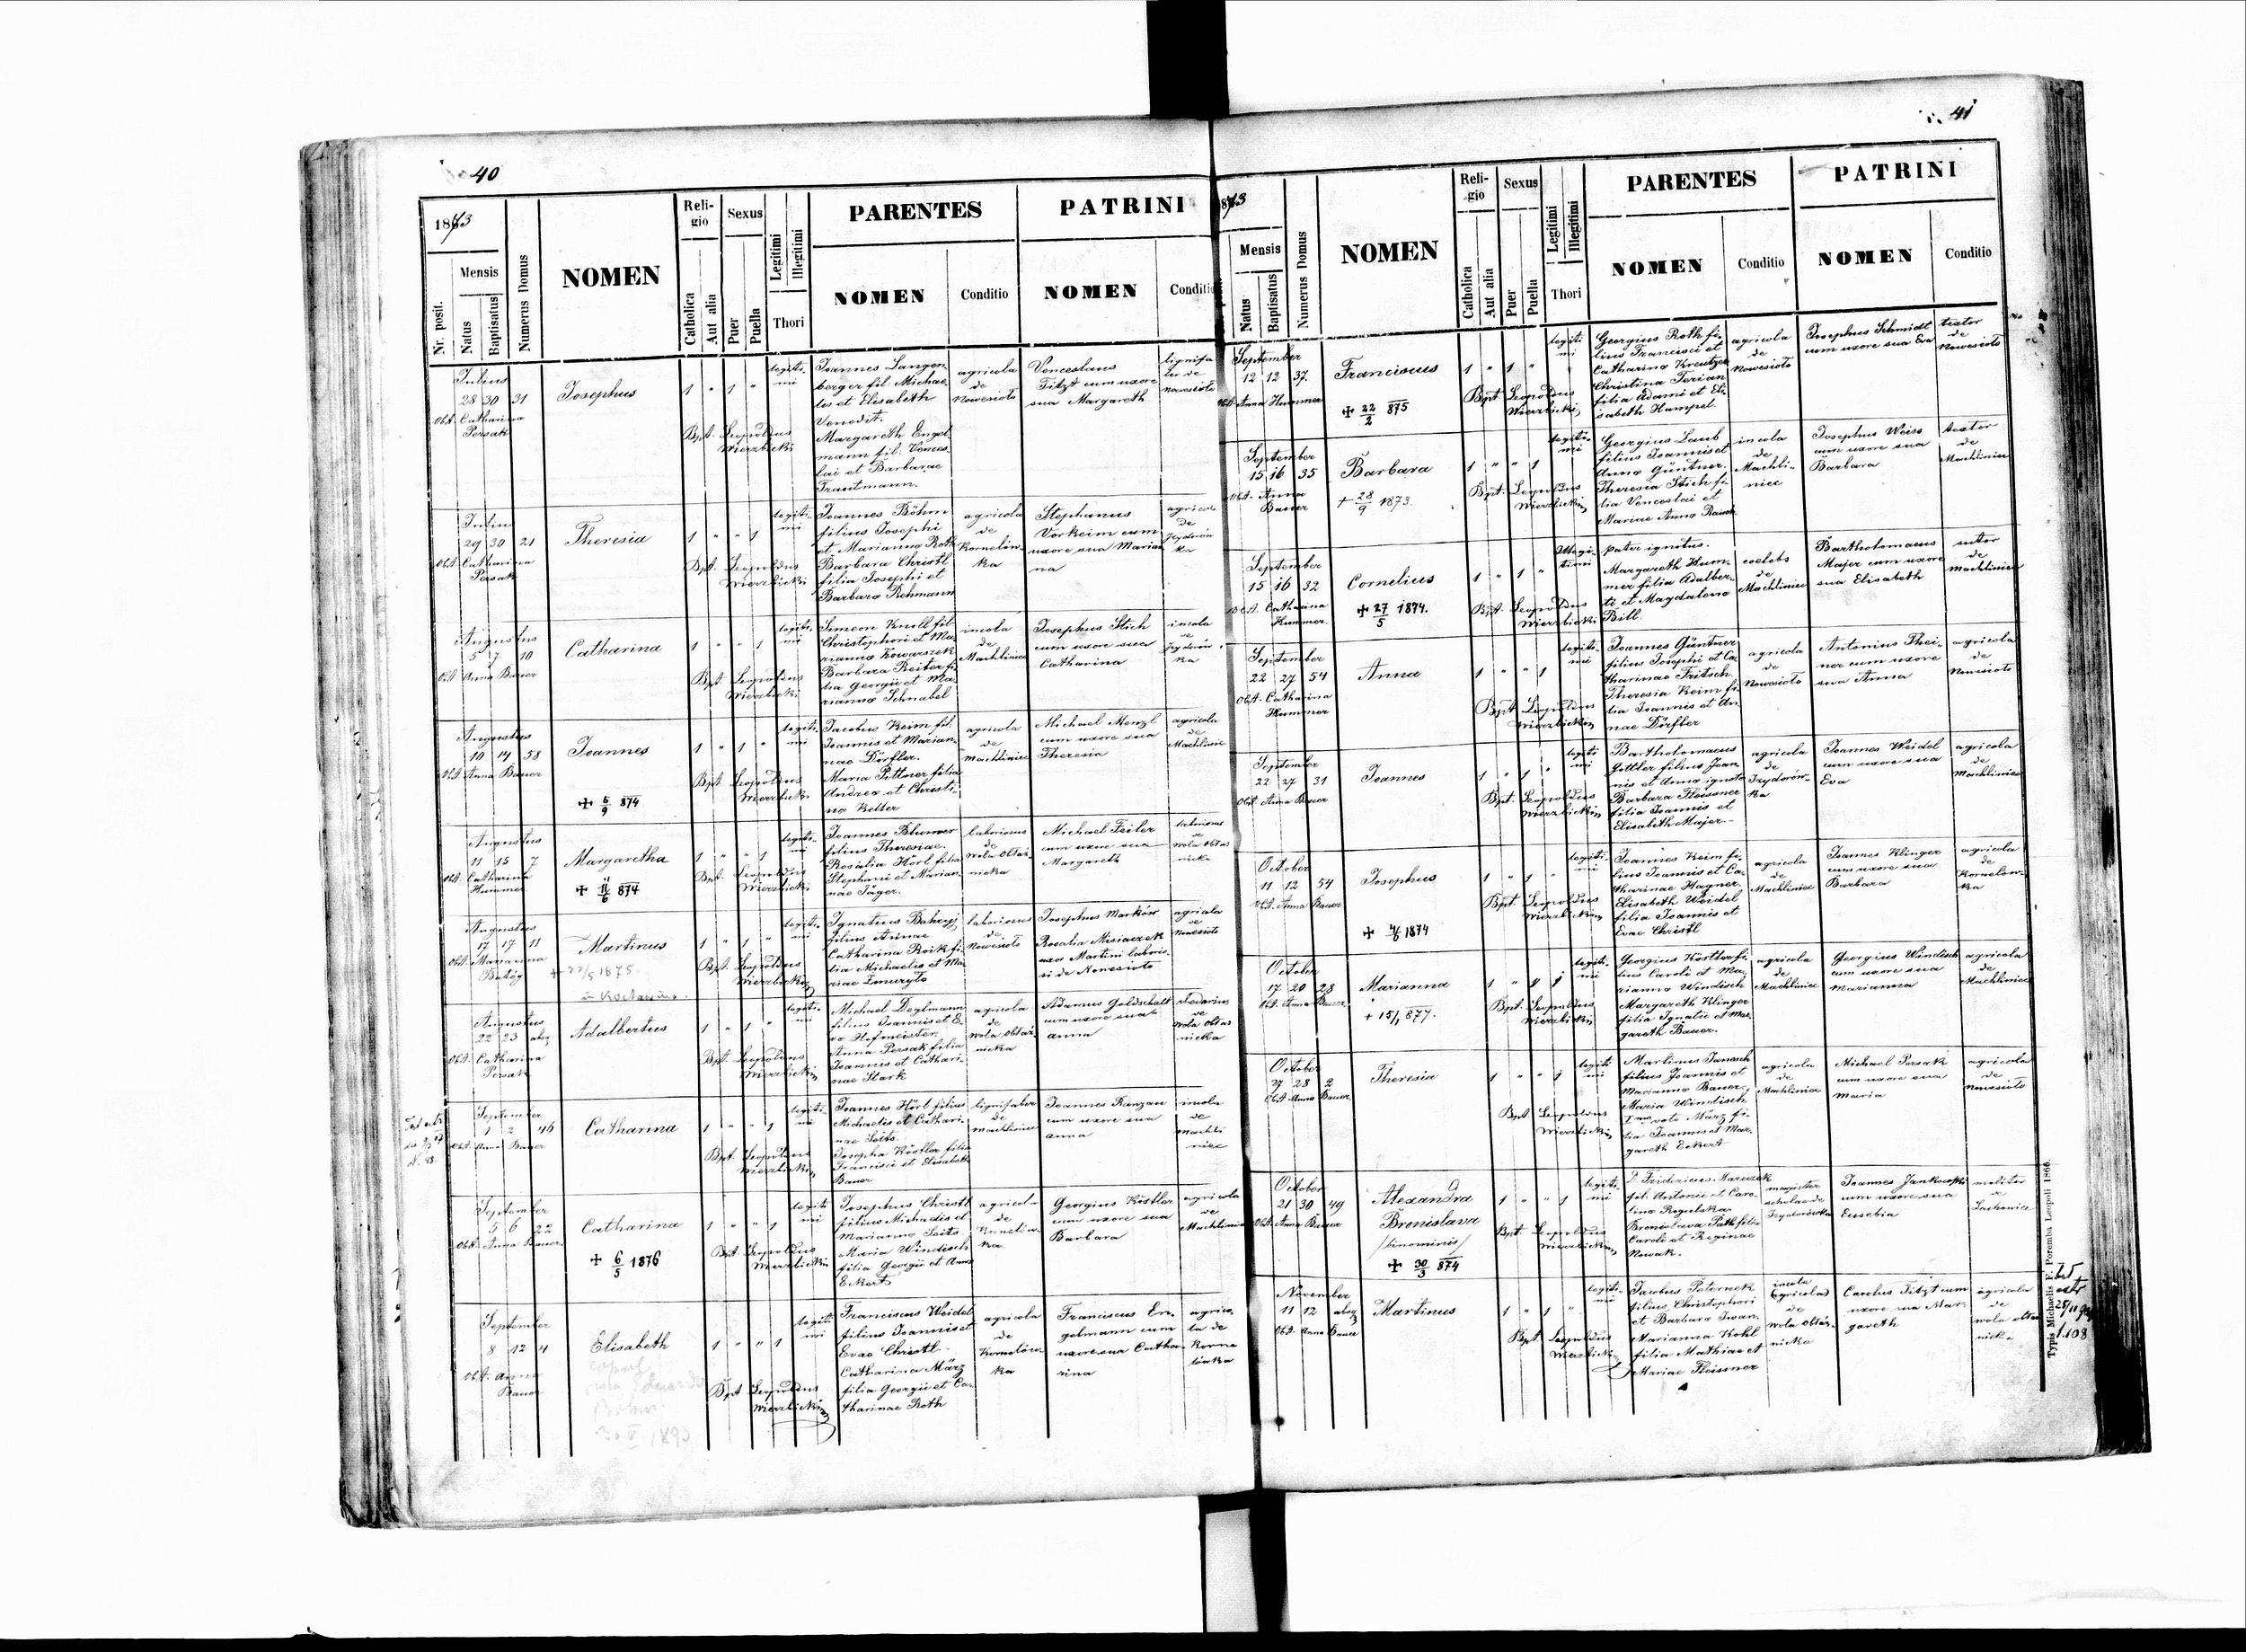 40
1873
Nr. posit.
Mensis
Natus
Baptisatus
Numerus Domus
NOMEN
Religio
Catholica
Aut alia
Sexus
Puer
Puella
Legitimi
Illegitimi
Thori
PARENTES
NOMEN
Conditio
PATRINI
NOMEN
Conditio
Julius
28 30 31
Obst. Catharina
Persak
Josephus
1 " 1 "
legiti-
mi
Bpt. Leopoldus
Wierzbicki
Joannes Langen
berger fil. Michae
lis et Elisabeth
Venedit.
Margareth Engel
mann fil. Vences
lai et Barbarae
Trautmann.
agricola
de
Nowesioło
Venceslaus
Titzt cum uxore
sua Margareth
lignifa
ber de
Nowesioło
Julius
29 30 21
Obst. Catharina
Persak
Theresia
1 " " 1
legiti-
mi
Bpt. Leopoldus
Wierzbicki
Joannes Böhm
filius Josephi
et Marianna Roth
Barbara Christl
filia Josephi et
Barbara Rehmann
agricola
de
Kornelów-
ka
Stephanus
Vorkeim cum
uxore sua Marian
na
agricola
de
Izydorów
ka
Augustus
5 7 10
Obst. Anna Bauer
Catharina
1 " " 1
legiti-
mi
Bpt. Leopoldus
Wierzbicki
Simeon Knoll fil
Christophori et Ma
rianna Kowarszek
Barbara Reiter fi
lia Georgii et Ma
rianna Schnabel
incola
de
Machliniec
Josephus Stich
cum uxore sua
Catharina
incola
de
Izydorów
ka
Augustus
10 14 58
Obst. Anna Bauer
Joannes
+ 5/9 874
1 " 1 "
legiti-
mi
Bpt. Leopoldus
Wierzbicki
Jacobus Keim fil
Joannis et Marian
nae Dörfler.
Maria Pittner filia
Andrea et Christi
na Kelter
agricola
de
Machliniec
Michael Menzl
cum uxore sua
Theresia
agricola
de
Machliniec
Augustus
11 15 7
Obst. Catharina
Hummer
Margaretha
+ 11/6 874
1 " " 1
legiti-
mi
Bpt. Leopoldus
Wierzbicki
Joannes Blumer
filius Theresiae.
Rosalia Hörl filia
Stephani et Marian
nae Jäger.
laboriosus
de
Wola Obłaż-
nicka
Michael Feiler
cum uxore sua
Margareth
laboriosus
de
Wola Obłaz
nicka
Augustus
17 17 11
Obst. Marianna
Martinus
+ 22/5 1875.
1 " 1 "
legiti-
mi
Bpt. Leopoldus
Wierzbicki
filius Annae
Catharina Roik fi
lia Michaelis et Ma
riae
laboriosus
de
Nowesioło
Josephus Markow
Rosalia Misiaczek
uxor Martini laborio
si de Nowesioło
agricola
de
Nowesioło
Augustus
22 23 absq
Obst. Catharina
Persak
Adalbertus
1 " 1 "
legiti-
mi
Bpt. Leopoldus
Wierzbicki
Michael Deglmann
filius Joannis et E
va Hofmeister.
Anna Persak filia
Joannis et Cathari
nae Stark
agricola
de
Wola Obłaż
nicka
Adamus Goldschalt
cum uxore sua
Anna
de
Wola Obłaz
nicka
September
1 2 46
Obst. Anna Bauer
Catharina
1 " " 1
legiti-
mi
Bpt. Leopoldus
Wierzbicki
Joannes Hörl filius
Michaelis et Cathari-
nae Seits.
Josepha Köstler filia
Francisci et Elisabeth
Bauer
lignifaber
de
Machliniec
Joannes Ranzau
cum uxore sua
Anna
incola
de
Machli
niec
September
5 6 22
Obst. Anna Bauer.
Catharina
+ 6/5 1876
1 " " 1
legiti
mi
Bpt. Leopoldus
Wierzbicki
Josephus Christl
filius Michaelis et
Marianna Seits
Maria Windisch
filia Georgii et Anna
Eckert
agricola
de
Kornelów
ka
Georgius Köstler
cum uxore sua
Barbara
agricola
de
Machliniec
September
8 12 4
Obst. Anna
Bauer
Elisabeth
1 " " 1
legiti
mi
Bpt. Leopoldus
Wierzbicki
Franciscus Weidel
filius Joannis et
Evae Christl.
Catharina März
filia Georgii et Ca
tharinae Roth
agricola
de
Kornelów-
ka
Franciscus En-
gelmann cum
uxore sua Catha-
rina
agrico
la de
Korne
lówka
41
1873
Mensis
Natus
Baptisatus
Numerus Domus
NOMEN
Religio
Catholica
Aut alia
Sexus
Puer
Puella
Legitimi
Illegitimi
Thori
PARENTES
NOMEN
Conditio
PATRINI
NOMEN
Conditio
September
12 12 37.
Obst. Anna Hummer
Franciscus
+ 22/2 875
1 " 1 "
legiti
mi
Bpt. Leopoldus
Wierzbicki
Georgius Roth fi-
lius Francisci et
Catharina Kreutzer
Christina Terian
filia Adami et Eli
sabeth Hampel.
agricola
de
Nowesioło
Josephus Schmidt
cum uxore sua Eva
textor
de
Nowesioło
September
15 16 35
Obst. Anna
Bauer
Barbara
+ 28/9 1873.
1 " " 1
legiti-
mi
Bpt. Leopoldus
Wierzbicki
Georgius Laub
filius Joannis et
Anna Güntner.
Theresia Stich fi-
lia Venceslai et
Mariae Anna Rauch
incola
de
Machli-
niec
Josephus Weiss
cum uxore sua
Barbara
textor
de
Machliniec
September
15 16 32
Obst. Catharina
Hummer.
Cornelius
+ 27/5 1874.
1 " 1 "
Illegi-
timi
Bpt. Leopoldus
Wierzbicki
pater ignotus.
Margareth Hum-
mer filia Adalber-
ti et Magdalena
Bill.
coelebs
de
Machliniec
Bartholomaeus
Majer cum uxore
sua Elisabeth
sutor
de
Machliniec
September
22 27 54
Obst. Catharina
Hummer
Anna
1 " " 1
legiti-
mi
Bpt. Leopoldus
Wierzbicki
Joannes Güntner
filius Josephi et Ca
tharinae Fritsch
Theresia Keim fi-
lia Joannis et An
nae Dörfler
agricola
de
Nowesioło
Antonius Thei-
ner cum uxore
sua Anna
agricola
de
Nowesioło
September
22 27 31
Obst. Anna Bauer
Joannes
1 " 1 "
legiti
mi
Bpt. Leopoldus
Wierzbicki
Bartholomaeus
Gottler filius Joan
nis et Anna ignota
Barbara Fleissner
filia Joannis et
Elisabeth Majer.-
agricola
de
Izydorów-
ka
Joannes Weidel
cum uxore sua
Eva
agricola
de
Machliniec
October
11 12 54
Obst. Anna Bauer
Josephus
+ 4/6 1874
1 " 1 "
legiti-
mi
Bpt. Leopoldus
Wierzbicki
Joannes Keim fi-
lius Joannis et Ca-
tharinae Hagner.
Elisabeth Weidel
filia Joannis et
Evae Christl
agricola
de
Machliniec
Joannes Klinger
cum uxore sua
Barbara
agricola
de
Kornelów-
ka
October
17 20 28
Obst. Anna Bauer
Marianna
+ 15/1 877.
1 " " 1
legiti-
mi
Bpt. Leopoldus
Wierzbicki
Georgius Köstler fi
lius Caroli et Ma-
rianna Windisch
Margareth Klinger
filia Ignatii et Mar
gareth Bauer.
agricola
de
Machliniec
Georgius Windisch
cum uxore sua
Marianna
agricola
de
Machliniec
October
27 28 2
Obst. Anna Bauer
Theresia
1 " " 1
legiti
mi
Bpt. Leopoldus
Wierzbicki
Martinus Janesch
filius Joannis et
Marianna Bauer.
Maria Windisch
Imo voto März fi-
lia Joannis et Mar
gareth Eckert
agricola
de
Machliniec
Michael Persak
cum uxore sua
Maria
agricola
de
Nowesioło
October
21 30 49
Obst. Anna Bauer
Alexandra
Bronislava
/binominis/
+ 30/3 874
1 " " 1
legiti-
mi
Bpt. Leopoldus
Wierzbicki
D. Fridericus Marczak
fil. Antonii et Caro-
lina Regulska.
Bronislava Path filia
Caroli et Reginae
Nowak.
magister
scholae de
Izydorówka
Joannes Jankowski
cum uxore sua
Eusebia
molitor
de
November
11 12 absq
Obst. Anna Bauer
Martinus
1 " 1 "
legiti-
mi
Bpt. Leopoldus
Wierzbicki
Jacobus Peternek
filius Christophori
et Barbara Swan.
Marianna Kohl
filia Mathiae et
Mariae Fleissner
incola
(agricola)
de
Wola Obłaz-
nicka
Carolus Titzt cum
uxore sua Mar-
gareth
agricola
de
Wola Obłaz
nicka
Typis Michaelis F. Poremba Leopoli 1866.